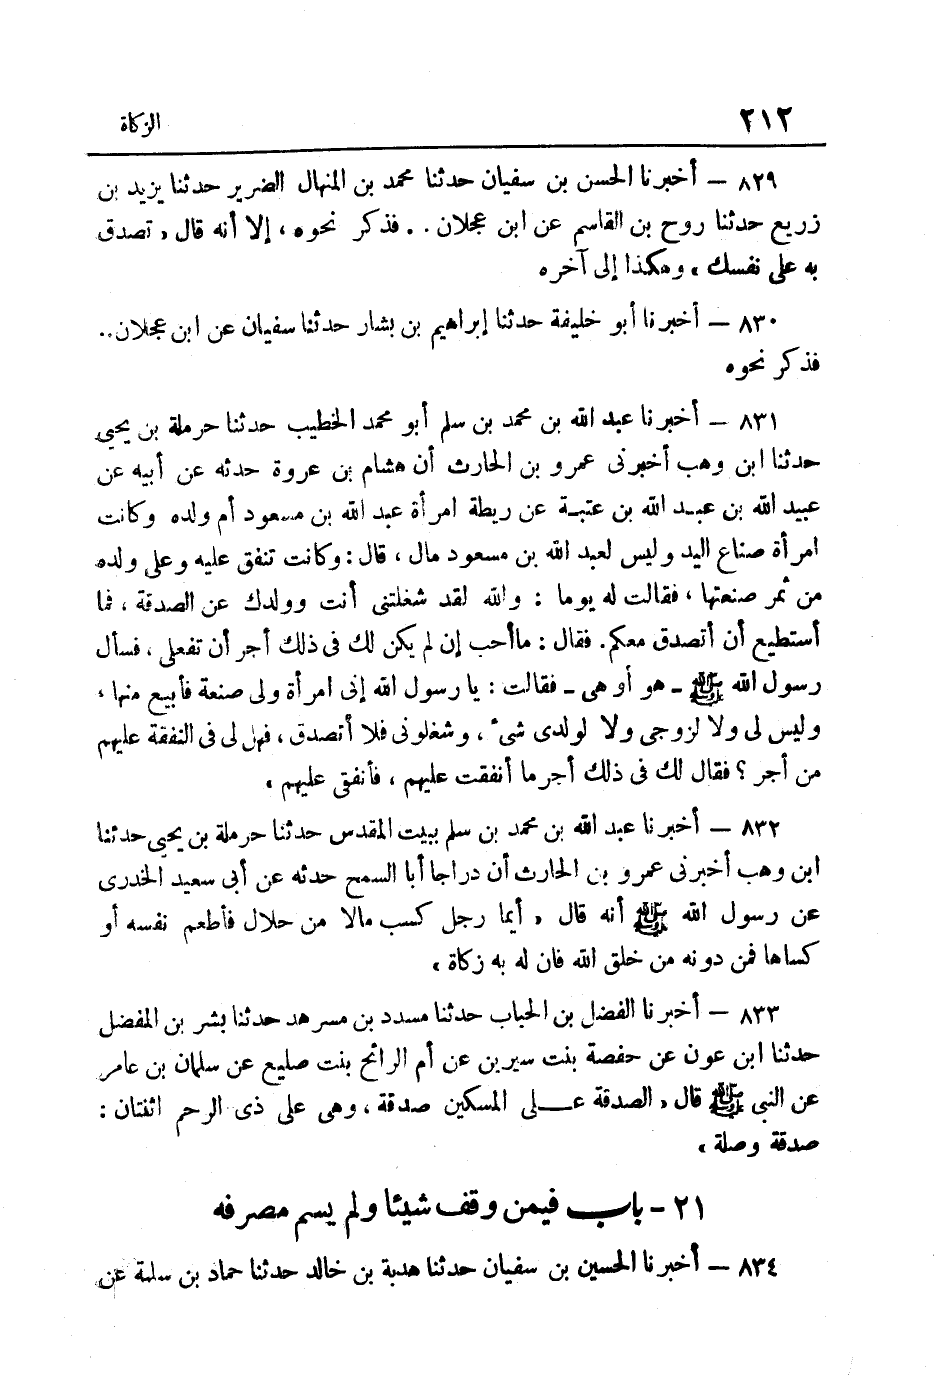 ٢١٢ الزكاة
٨٢٩ – أخبرنا الحسن بن سفيان حدثنا محمد بن المنهال الضرير حدثنا يزيد بن
زريع حدثنا روح بن القاسم عن ابن عجلان .. فذكر نحوه ، إلا أنه قال « تصدق
به على نفسك » وهكذا إلى آخره
٨٣٠ – أخبرنا أبو خليفة حدثنا إبراهيم بن بشار حدثنا سفيان عن ابن عجلان ..
فذكر نحوه
٨٣١ – أخبرنا عبد الله بن محمد بن سلم أبو محمد الخطيب حدثنا حرملة بن يحيى
حدثنا ابن وهب أخبرنى عمرو بن الحارث أن هشام بن عروة حدثه عن أبيه عن
عبيد الله بن عبد الله بن عتبة عن ريطة امرأة عبد الله بن مسعود أم ولده وكانت
امرأة صناع اليد وليس لعبد الله بن مسعود مال ، قال : وكانت تنفق عليه وعلى ولده
من ثمر صنعتها ، فقالت له يوما : والله لقد شغلتنى أنت وولدك عن الصدقة ، فما
أستطيع أن أتصدق معكم. فقال : ما أحب إن لم يكن لك فى ذلك أجر أن تفعلى ، فسأل
رسول الله ﷺ ـ هو أو هى ـ فقالت : يا رسول الله إنى امرأة ولى صنعة فأبيع منها ،
وليس لى ولا لزوجى ولا لولدى شىء ، وشغلونى فلا أتصدق ، فهل لى فى النفقة عليهم
من أجر ؟ فقال لك فى ذلك أجر ما أنفقت عليهم ، فأنفقى عليهم »
٨٣٢ – أخبرنا عبد الله بن محمد بن سلم ببيت المقدس حدثنا حرملة بن يحيى حدثنا
ابن وهب أخبرنى عمرو بن الحارث أن دراجا أبا السمح حدثه عن أبى سعيد الخدرى
عن رسول الله ﷺ أنه قال « أيما رجل كسب مالا من حلال فأطعم نفسه أو
كساها فمن دونه من خلق الله فان له به زكاة »
٨٣٣ – أخبرنا الفضل بن الحباب حدثنا مسدد بن مسرهد حدثنا بشر بن المفضل
حدثنا ابن عون عن حفصة بنت سيرين عن أم الرائح بنت صليع عن سلمان بن عامر
عن النبى ﷺ قال « الصدقة عـــلى المسكين صدقة ، وهى على ذى الرحم اثنتان :
صدقة وصلة »
٢١ - باب فيمن وقف شيئا ولم يسم مصرفه
٨٣٤ – أخبرنا الحسين بن سفيان حدثنا هدبة بن خالد حدثنا حماد بن سلمة عن